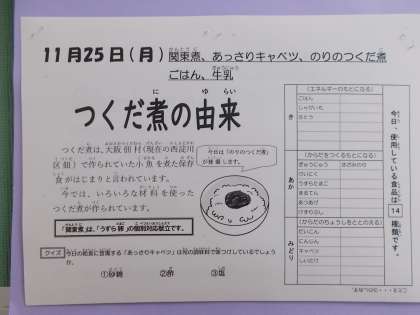 11月25日(月)関東煮、あっさりキャベツ、のりのつくだ煮
ごはん、牛乳
つくだ煮の由来
つくだ煮は、大阪佃村(現在の西淀川
区佃)で作られていた小魚を煮た保存
食がはじまりと言われています。
今では、いろいろな材料を使った
つくだ煮が作られています。
今日は「のりのつくだ煮」
が登場します。
「関東煮」は、「うずら卵」の個別対応献立です。
クイズ 今日の給食に登場する「あっさりキャベツ」は何の調味料で味つけしているでしょうか。
①砂糖 ②酢 ③塩
今日、使用している食品は14種類です。
き
(エネルギーのもとになる)
ごはん
じゃがいも
さとう
あか
(からだをつくるもとになる)
ぎゅうにゅう
けいにく
うずらたまご
あつあげ
けずりぶし
みどり
(からだのちょうしをととのえる)
だいこん
にんじん
キャベツ
しいたけ